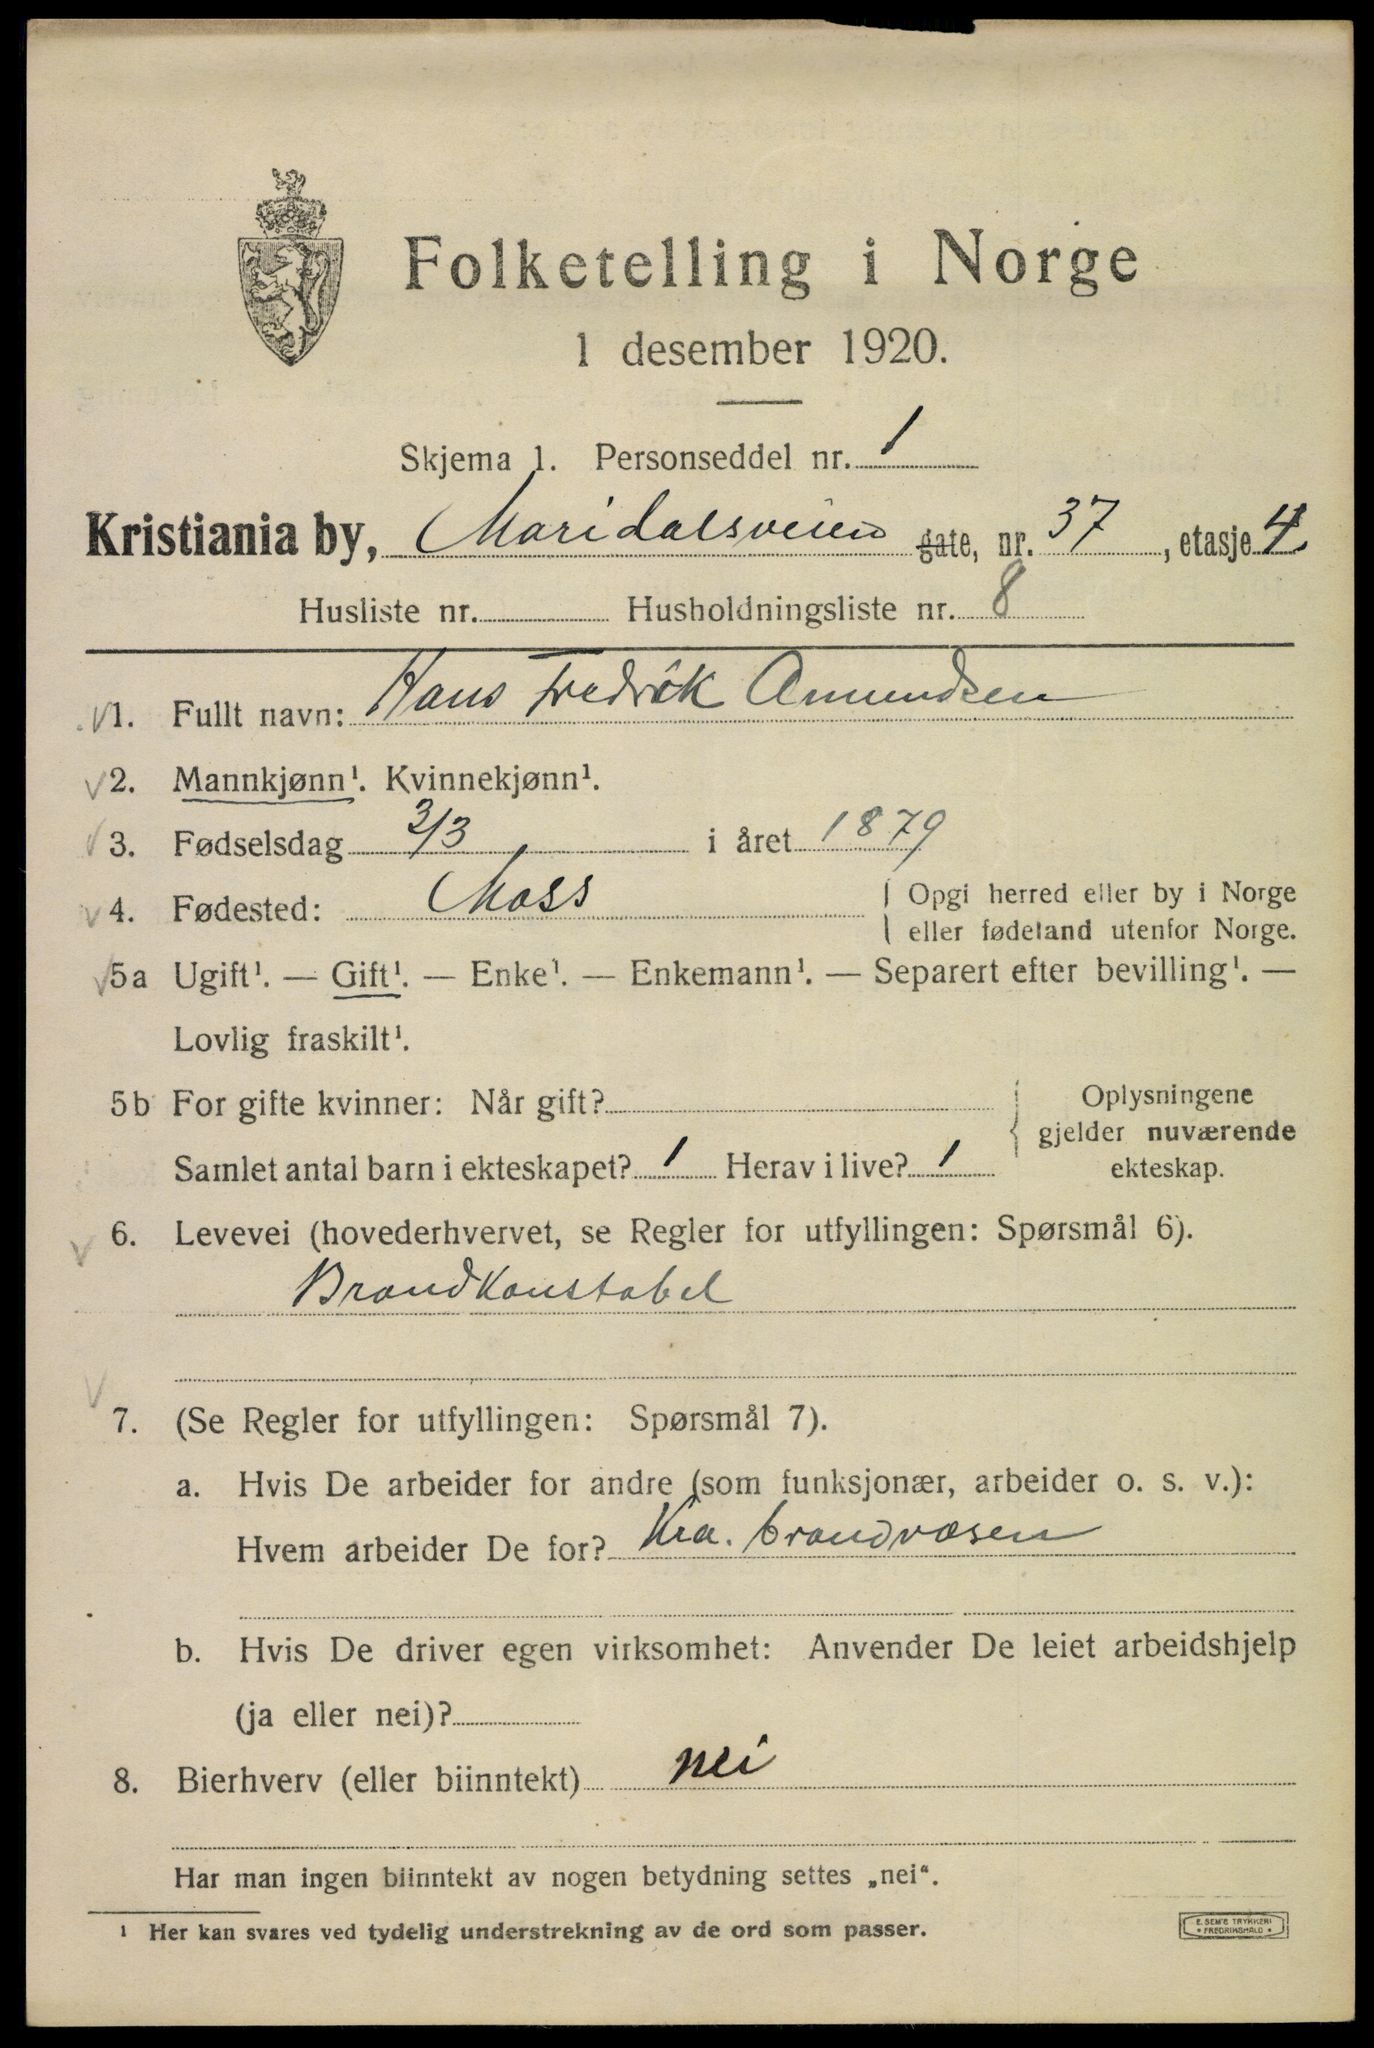 Folketelling i Norge
1 desember 1920.
Skjema 1. Personseddel nr. 1
Kristiania by, Maridalsveien gate, nr. 37, etasje 4.
Husliste nr. Husholdningsliste nr. 8
1. Fullt navn: Hans Fredrik Amundsen
2. Mannkjønn¹. Kvinnekjønn¹.
3. Fødselsdag 3/3 i året 1879
4. Fødested: Moss { Opgi herred eller by i Norge
eller fødeland utenfor Norge.
5a Ugift¹. — Gift¹. — Enke¹. — Enkemann¹. — Separert efter bevilling¹. —
Lovlig fraskilt¹.
5b For gifte kvinner: Når gift? { Oplysningene
gjelder nuværende
Samlet antal barn i ekteskapet? 1 Herav i live? 1 ekteskap.
6. Levevei (hovederhvervet, se Regler for utfyllingen: Spørsmål 6).
Brandkonstabel
7. (Se Regler for utfyllingen: Spørsmål 7).
a. Hvis De arbeider for andre (som funksjonær, arbeider o. s. v.):
Hvem arbeider De for? Kra. brandvæsen
b. Hvis De driver egen virksomhet: Anvender De leiet arbeidshjelp
(ja eller nei)?
8. Bierhverv (eller biinntekt) nei
Har man ingen biinntekt av nogen betydning settes „nei“.
¹ Her kan svares ved tydelig understrekning av de ord som passer.
E. SEM'S TRYKKERI
• FREDRIKSHALD •